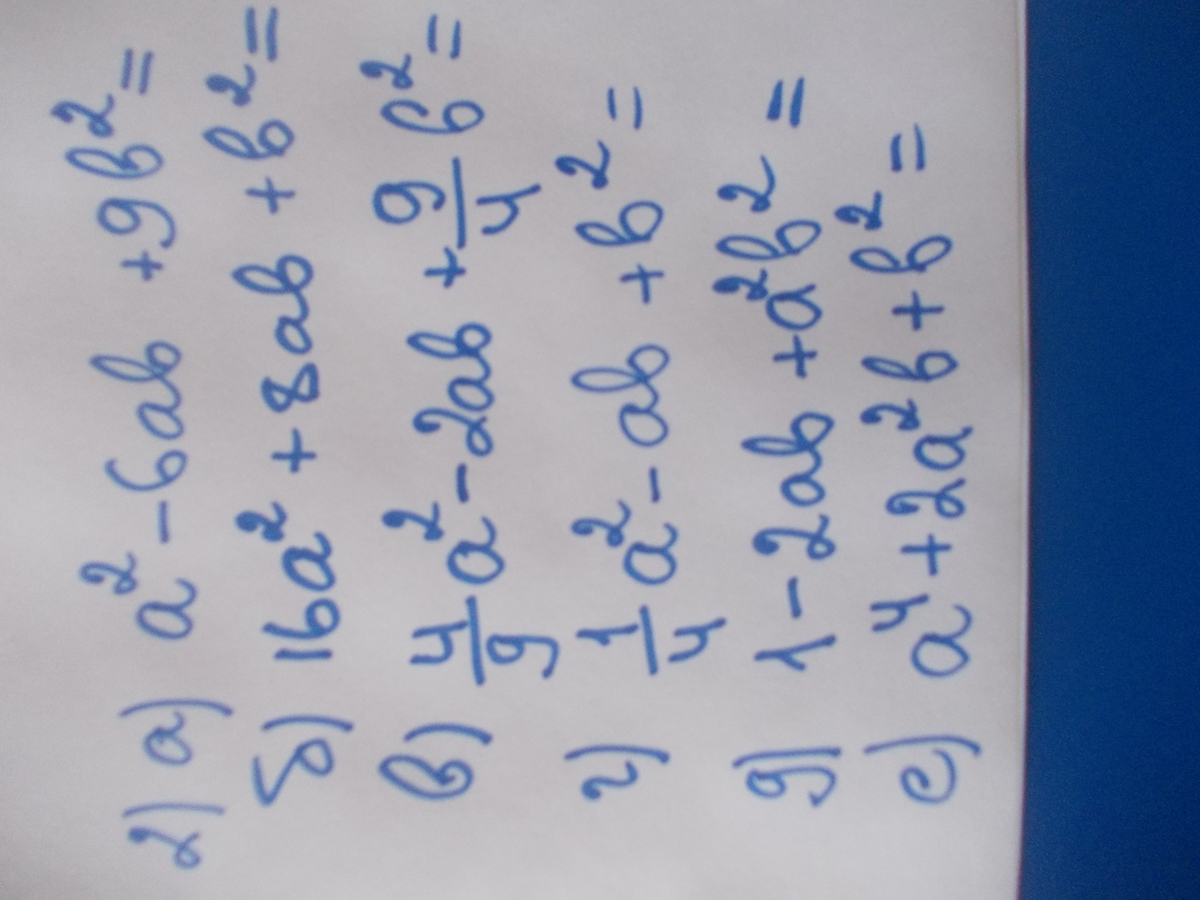 2) а) a² - 6ab + 9b² =
б) 16a² + 8ab + b² =
в) 4/9 a² - 2ab + 9/4 b² =
г) 1/4 a² - ab + b² =
д) 1 - 2ab + a²b² =
е) a⁴ + 2a²b + b² =